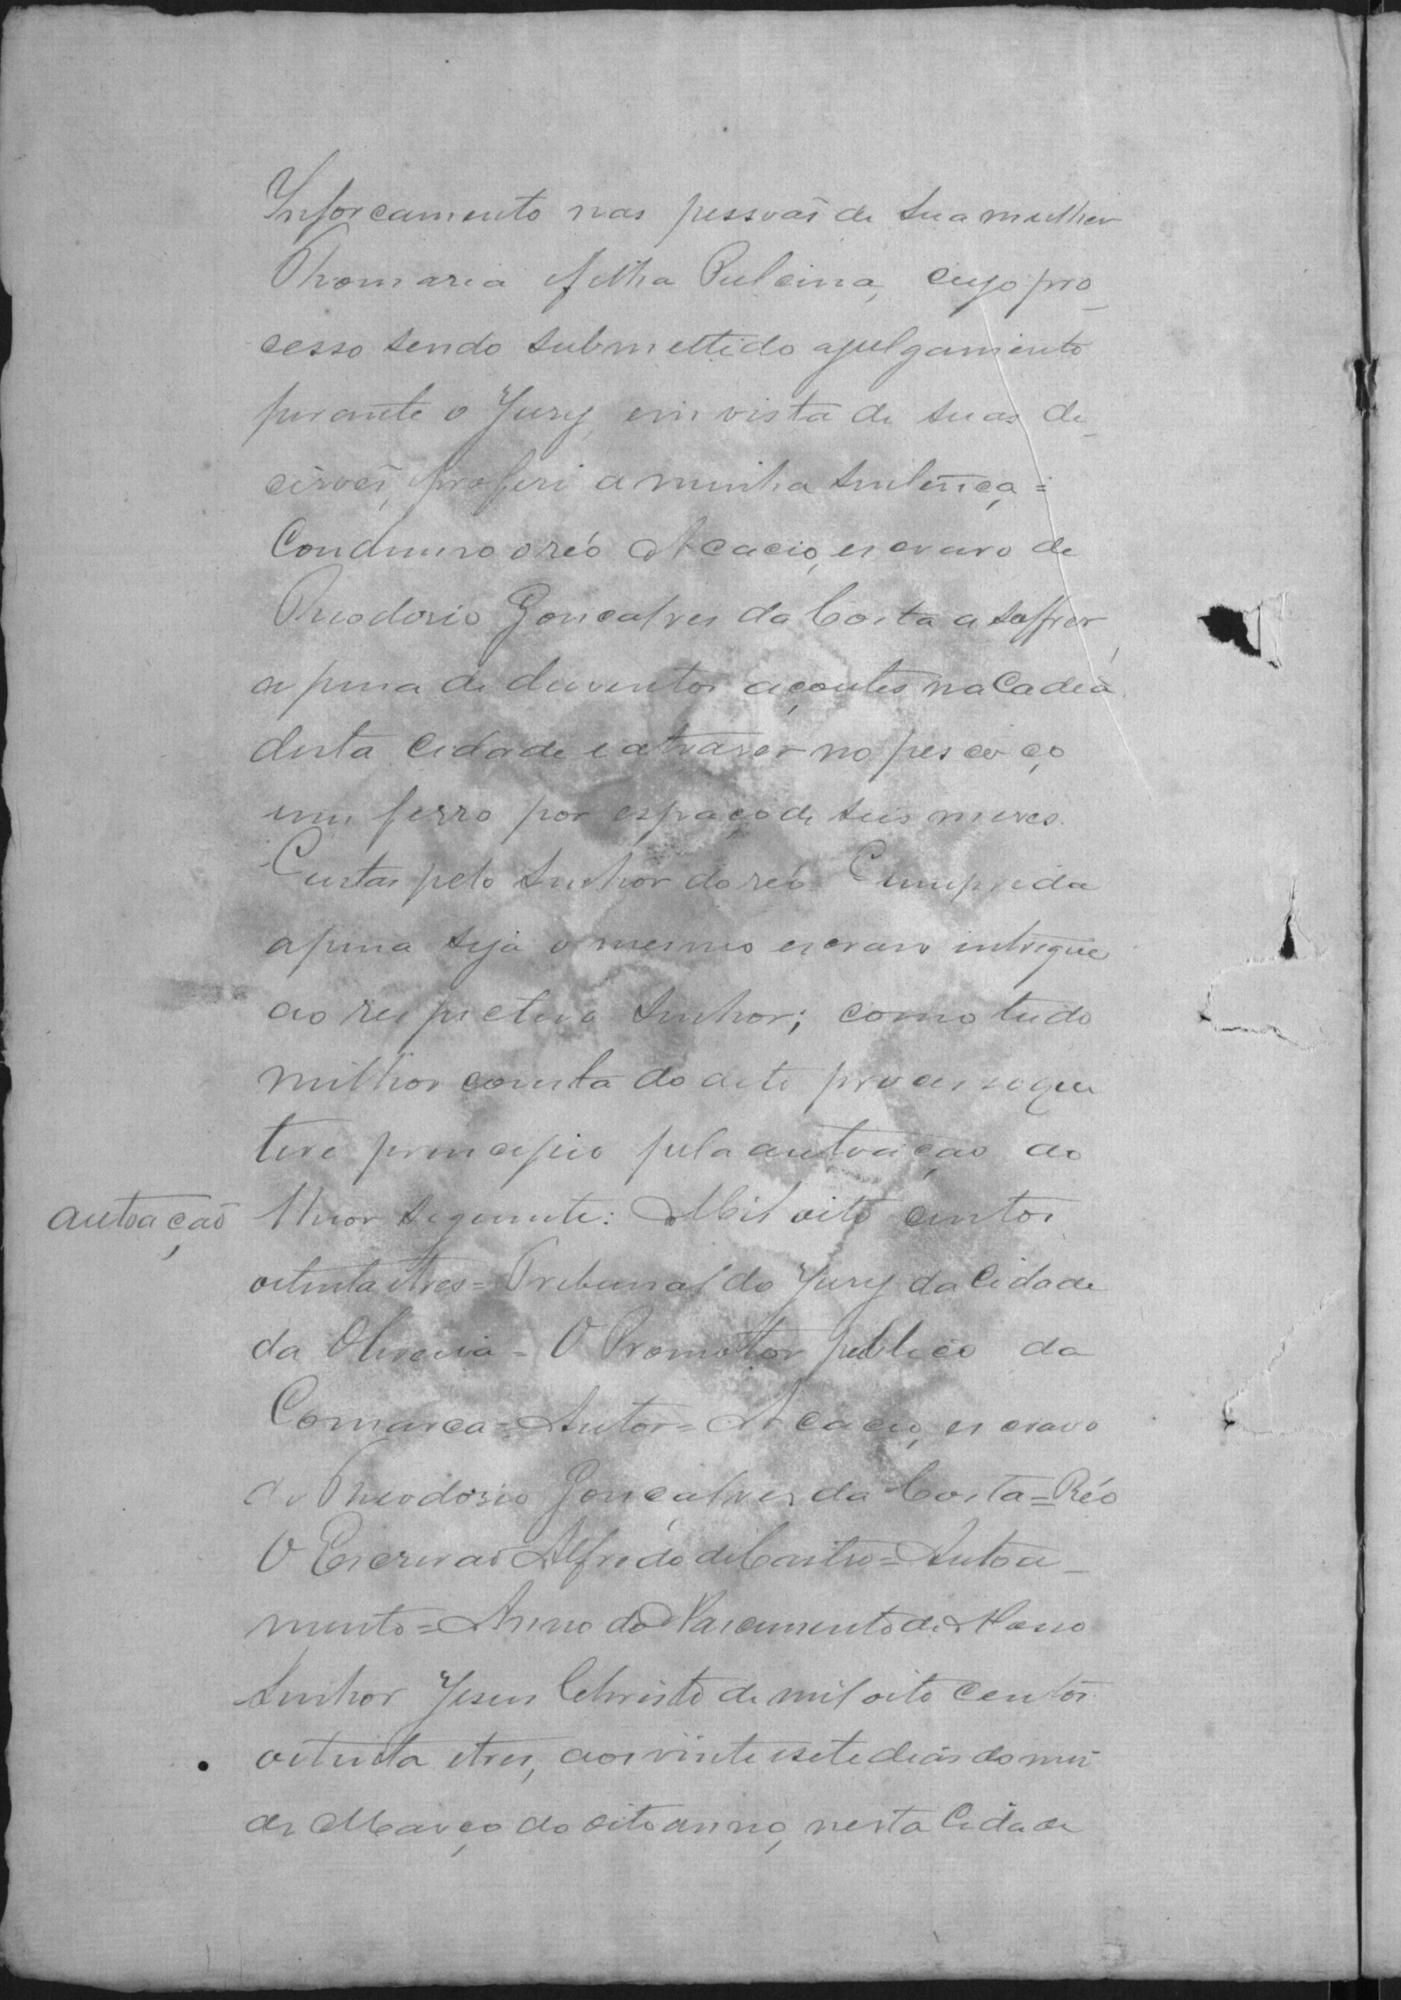 Inforcamento nas pessoas de sua mulher
Thomazia e filha Pulcina, cujo pro_
cesso sendo submettido a julgamento
perante o Jury, em vista de suas de_
cisoes, proferi a minha sentença =
Condemno o réo Acacio, escravo de
Theodosio Gonçalves da Costa a soffrer
a pena de duzentos açoutes na Cadea
desta Cidade e a traser no pescoço
um ferro por espaço de seis meses.
Custas pelo senhor do réo. Cumprida
a pena seja o mesmo escravo intregue
ao respectivo senhor; como tudo
milhor consta do dito processo que
teve principio pela autoação do
autoação
theor seguinte: Mil oito centos
oitenta e tres = Tribunal do Jury da Cidade
da Oliveira = O Promotor publico da
Comarca = Autor = Acacio, escravo
de Theodosio Gonçalves da Costa = Réo
O Escrivão Alfredo de Castro = Autoa_
mento = Anno do Nascimento de Nosso
Senhor Jesus Christo de mil oito centos
oitenta e tres, aos vinte e sete dias do mes
de Março do dito anno, nesta Cidade